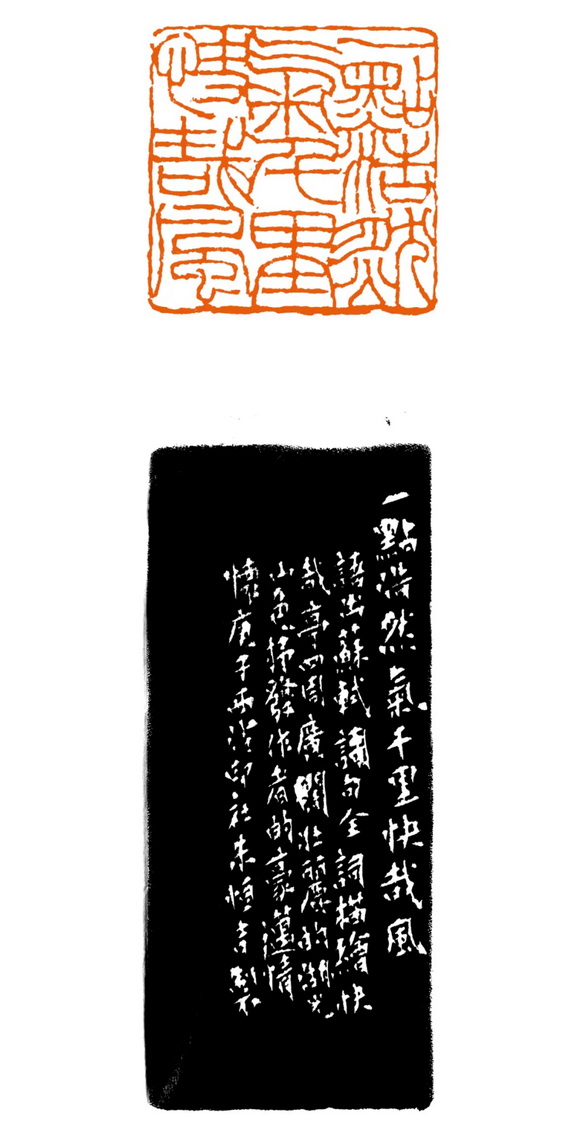 一點浩然
氣千里
快哉風
一點浩然氣千里快哉風
語出蘇軾句全詞描繪快
哉亭四周廣闊壯麗的湖光
山色抒發作者的豪邁情
懷庚子西泠印社朱恒吉製